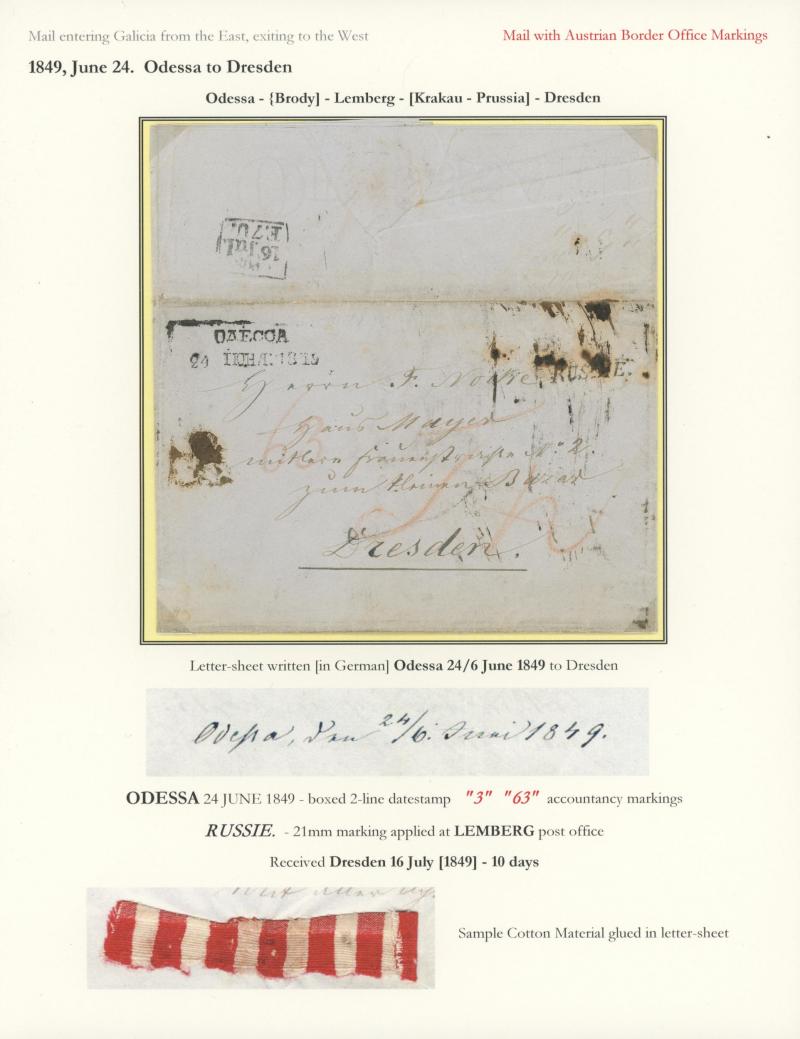 Mail entering Galicia from the East, exiting to the West
Mail with Austrian Border Office Markings
1849, June 24. Odessa to Dresden
Odessa - {Brody] - Lemberg - [Krakau - Prussia] - Dresden
16 Jul
ОДЕССА
24 1849
RUSSIE.
Herrn F.
Haus Mayer
mittlere Frauenstrasse No 2.
zum kleinen Bazar
63
Dresden.
Letter-sheet written [in German] Odessa 24/6 June 1849 to Dresden
Odessa, den 24/6. Juni 1849.
ODESSA 24 JUNE 1849 - boxed 2-line datestamp "3" "63" accountancy markings
RUSSIE. - 21mm marking applied at LEMBERG post office
Received Dresden 16 July [1849] - 10 days
Sample Cotton Material glued in letter-sheet